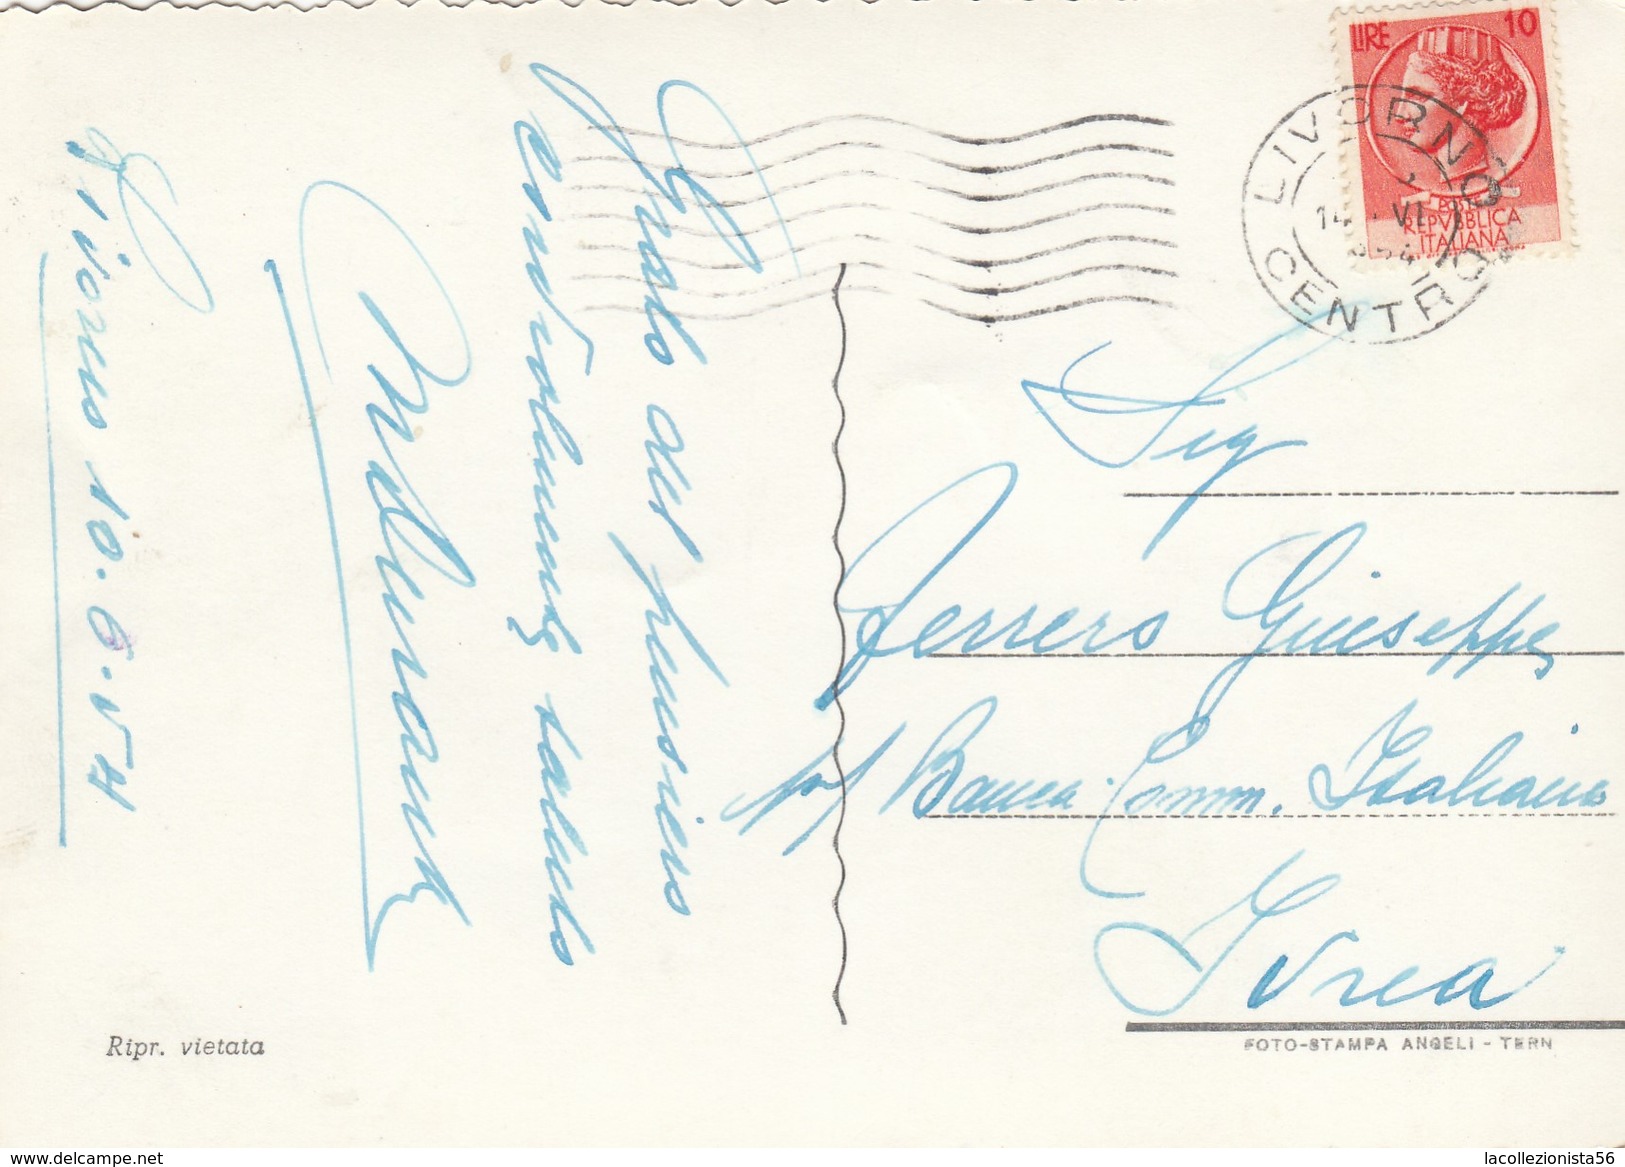 Livorno 10.6.54
Grato del pensiero
cordialmente saluto
LIRE 10
POSTE
REPVBBLICA
ITALIANA
LIVORNO
CENTRO
14 VI
Sig
Ferrero Giuseppe
Banca Comm. Italiana
Ivrea
Ripr. vietata
FOTO-STAMPA ANGELI - TERN
www.delcampe.net
lacollezionista56